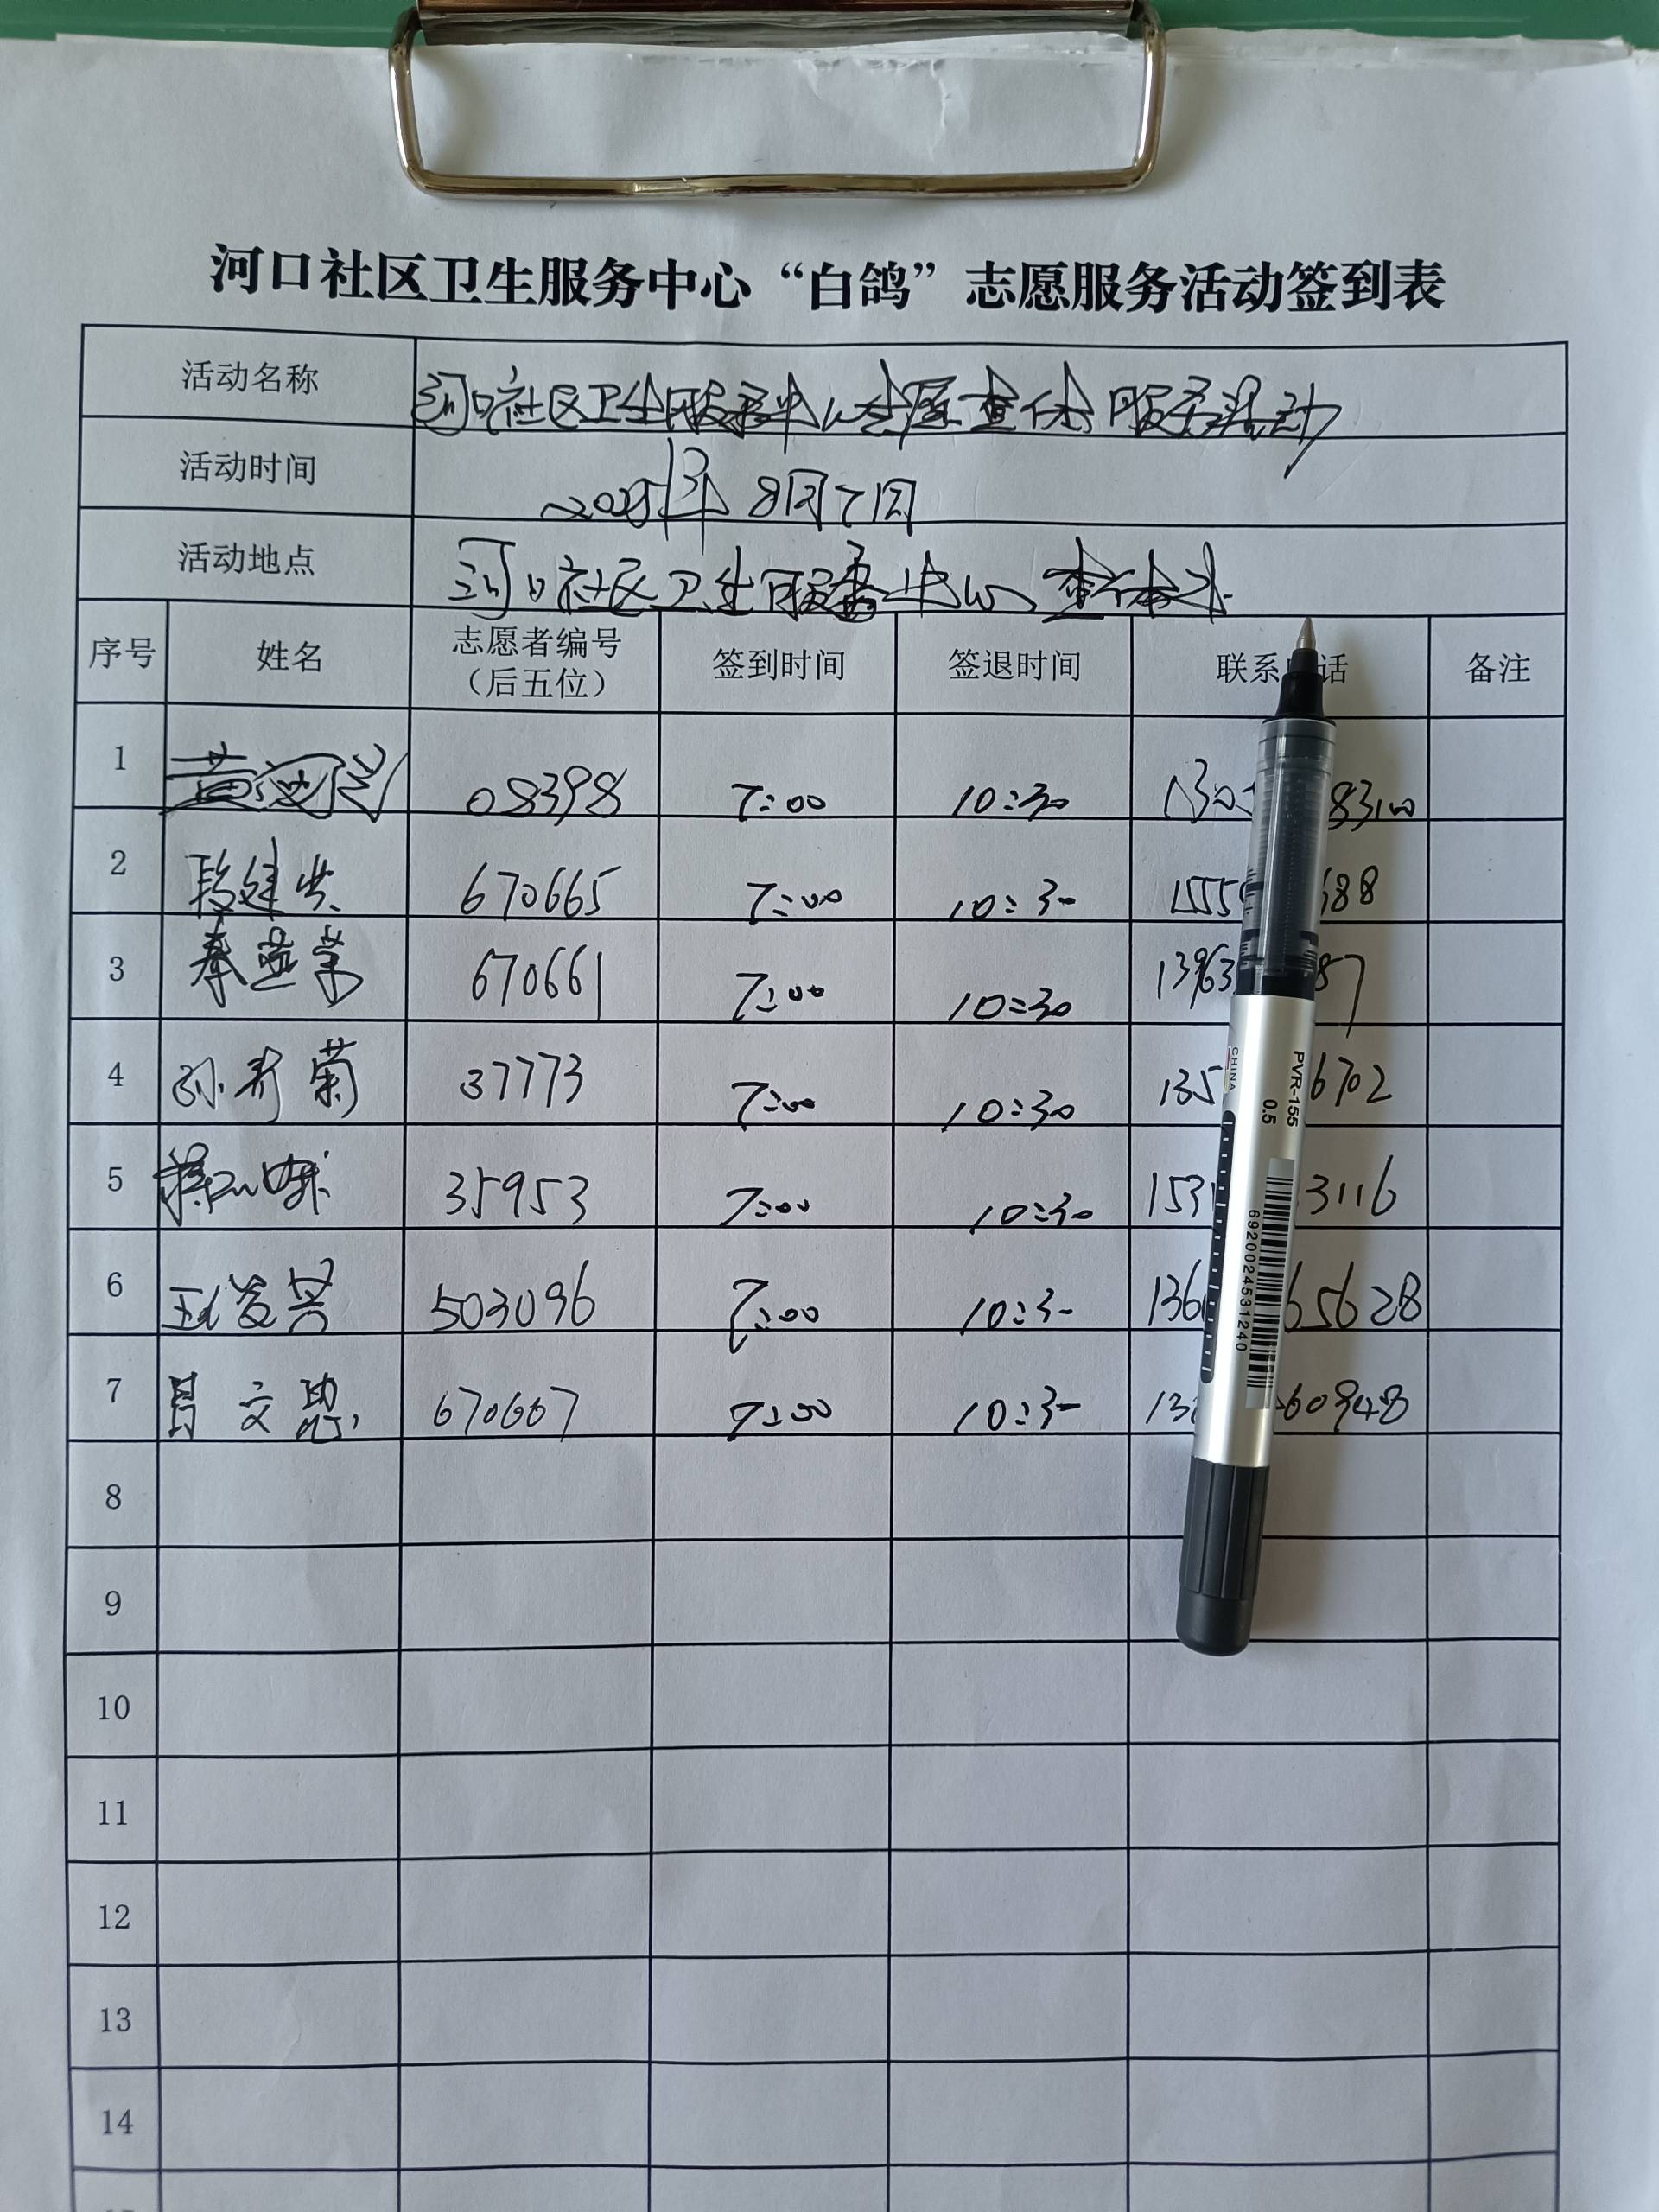 河口社区卫生服务中心“白鸽”志愿服务活动签到表
活动名称 河口社区卫生服务中心 查体服务活动
活动时间 2025年8月7日
活动地点 河口社区卫生服务中心
序号 姓名 志愿者编号（后五位） 签到时间 签退时间 联系 话 备注
1 08398 7:00 10:30
2 段建 670665 7:00 10:30 1555 688
3 秦 670661 7:00 10:30 13963 87
4 孙 菊 37773 7:00 10:30 135 6702
5 35953 7:00 10:30 153 3116
6 503096 7:00 10:30 136 65628
7 吕文 670667 7:00 10:30 60948
8
9
10
11
12
13
14
CHINA
PVR-155
0.5
6920024531240